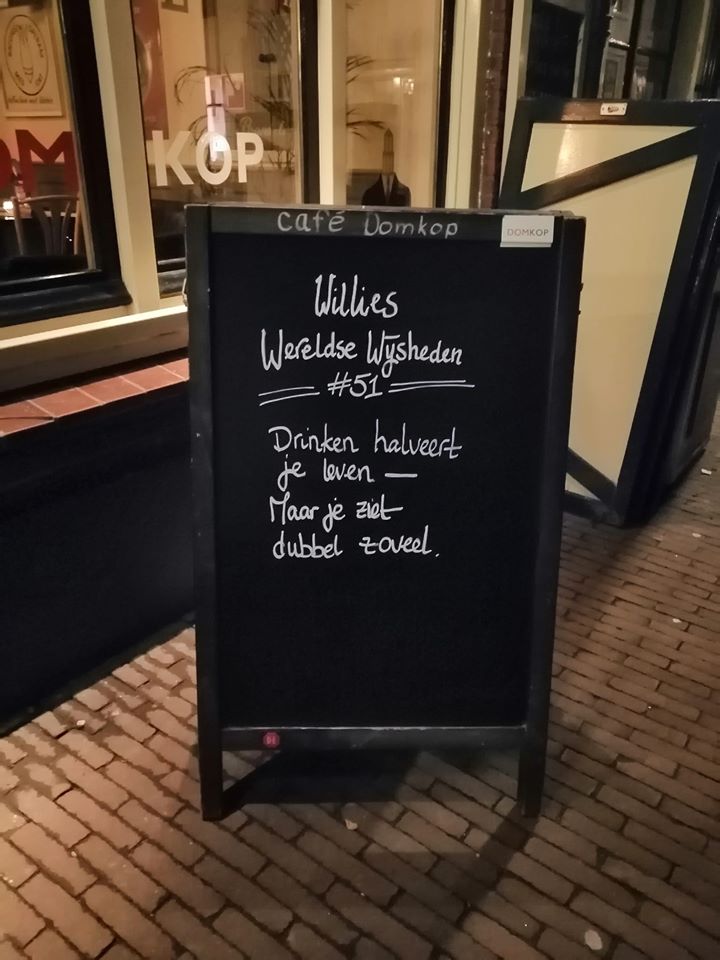 OM KOP
café Domkop
DOMKOP
Willies
Wereldse Wijsheden
#51
Drinken halveert
je leven —
Maar je ziet
dubbel zoveel.